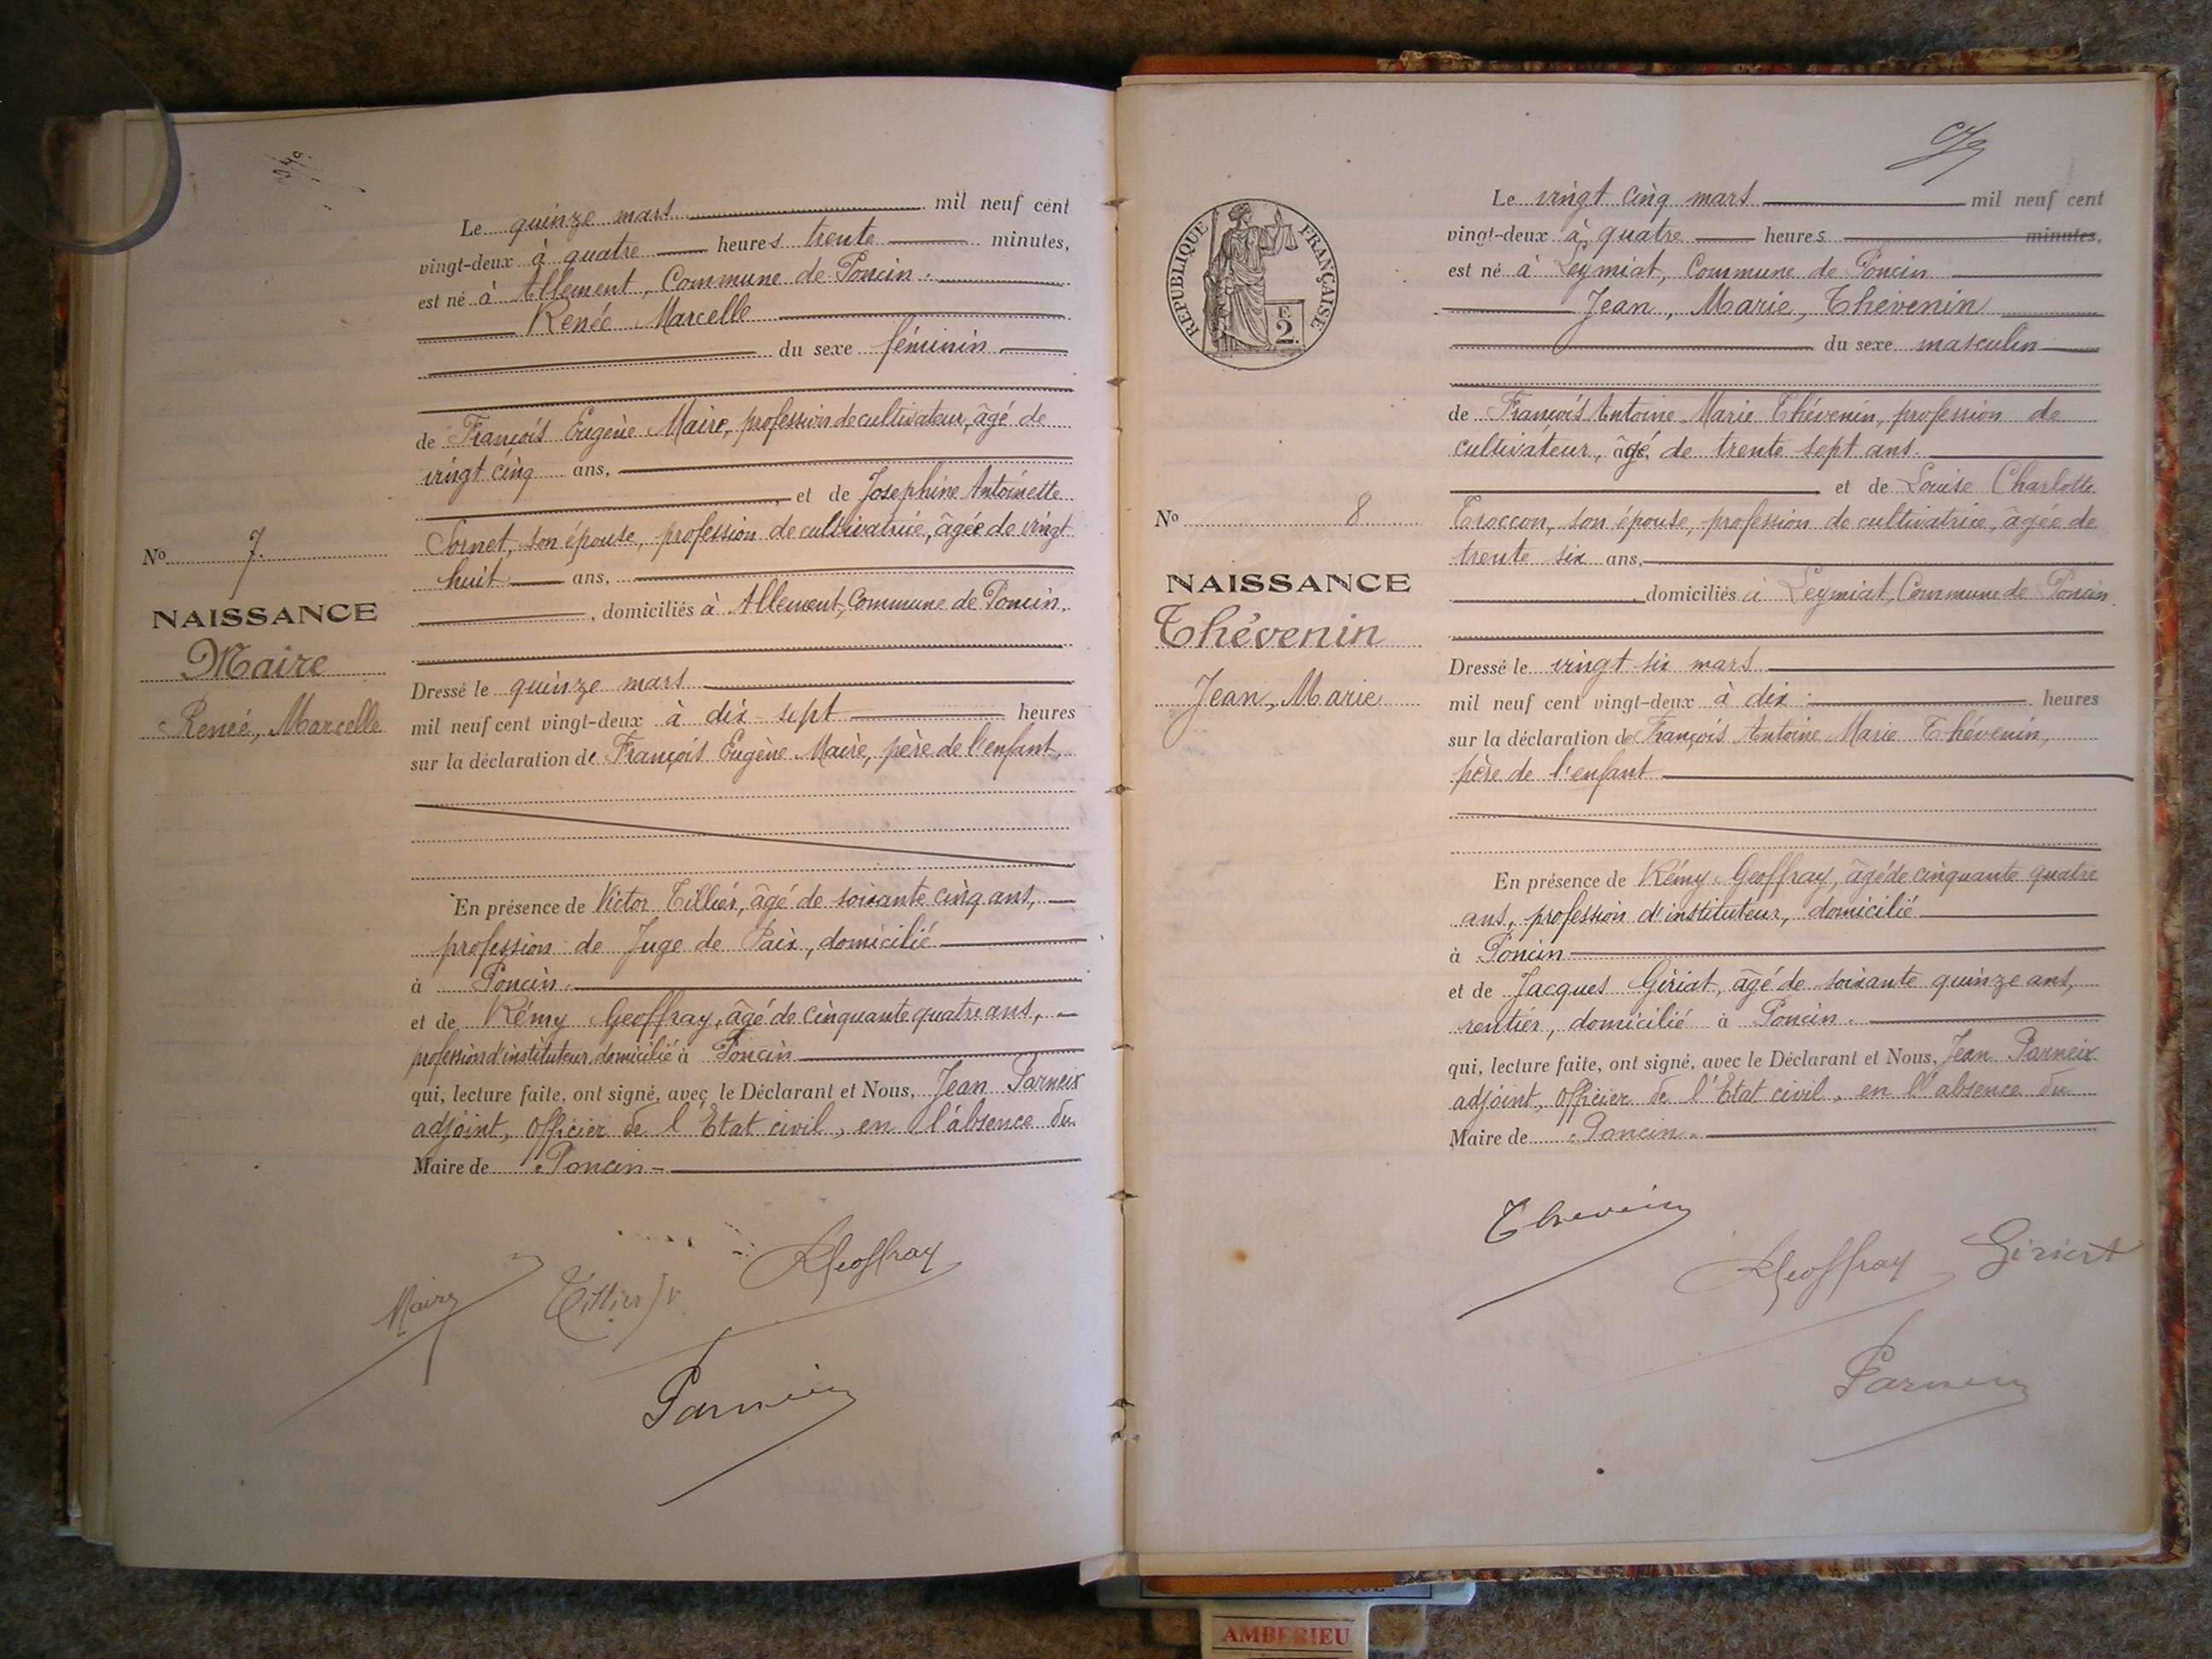 Le quinze mars mil neuf cent
vingt-deux à quatre heures trente minutes,
est né à Allement, Commune de Poncin.
Renée Marcelle
du sexe féminin
de François Eugène Maire, profession de cultivateur, âgé de
vingt cinq ans,
, et de Josephine Antoinette
Sornet, son épouse, profession de cultivatrice, âgée de vingt
huit ans,
, domiciliés à Allement, Commune de Poncin.
No 7.
NAISSANCE
Maire
Renée, Marcelle
Dressé le quinze mars
mil neuf cent vingt-deux à dix-sept heures
sur la déclaration de François Eugène Maire, père de l'enfant.
En présence de Victor Tillier, âgé de soixante cinq ans,
profession de Juge de Paix, domicilié
à Poncin.
et de Rémy Geoffray, âgé de cinquante quatre ans,
profession d'instituteur, domicilié à Poncin
qui, lecture faite, ont signé, avec le Déclarant et Nous, Jean Parneix
adjoint, Officier de l'Etat civil, en l'absence du
Maire de Poncin
Maire
Tillier V
RGeoffray
Parneix
RÉPUBLIQUE FRANÇAISE
F.
2.
Le vingt cinq mars mil neuf cent
vingt-deux à quatre heures minutes,
est né à Leymiat, Commune de Poncin
Jean, Marie, Thévenin
du sexe masculin
de François Antoine Marie Thévenin, profession de
cultivateur, âgé, de trente sept ans.
et de Louise Charlotte
Troccon, son épouse, profession de cultivatrice, âgée de
trente six ans,
domiciliés à Leymiat, Commune de Poncin.
No 8
NAISSANCE
Thévenin
Jean, Marie
Dressé le vingt six mars
mil neuf cent vingt-deux à dix heures
sur la déclaration de François Antoine Marie Thévenin,
père de l'enfant
En présence de Rémy Geoffray, âgé de cinquante quatre
ans, profession d'instituteur, domicilié
à Poncin
et de Jacques Giriat, âgé de soixante quinze ans,
rentier, domicilié à Poncin.
qui, lecture faite, ont signé, avec le Déclarant et Nous, Jean Parneix
adjoint, Officier de l'Etat civil, en l'absence du
Maire de Poncin.
Thevenin
RGeoffray
Giriat
Parneix
AMBERIEU